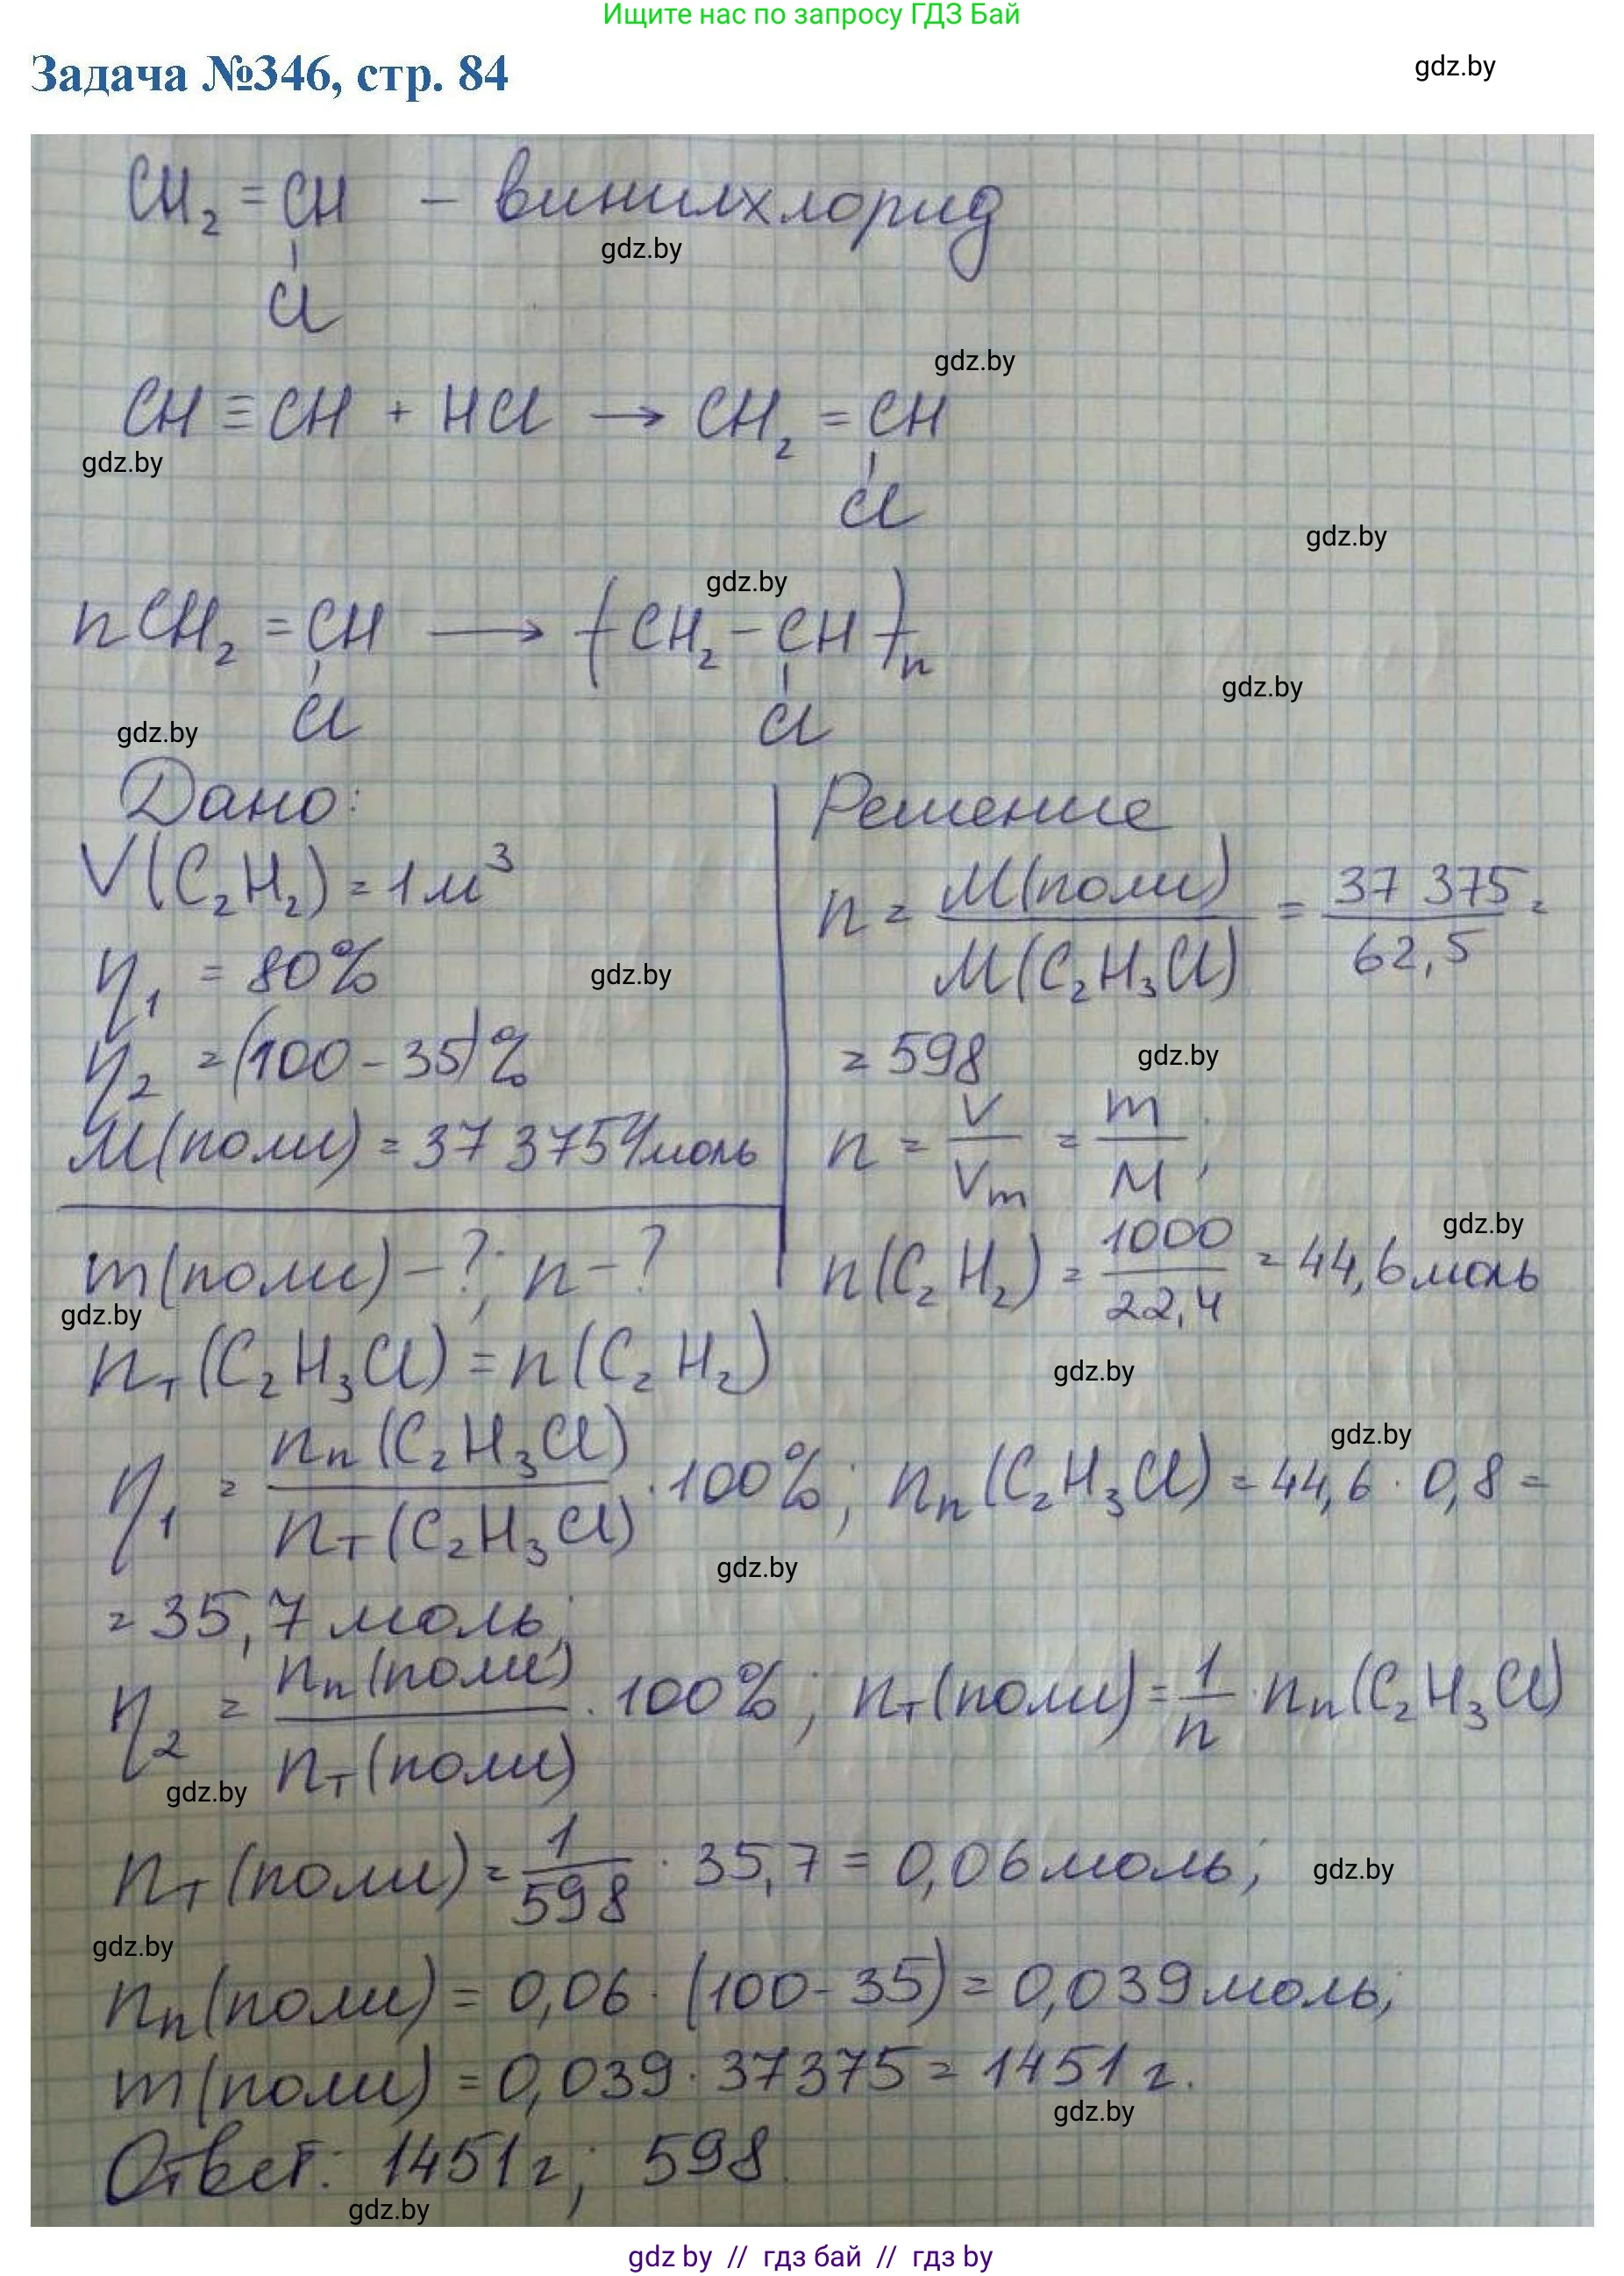 Ищите нас по запросу ГДЗ Бай
Задача №346, стр. 84
gdz.by
CH₂ = CH – винилхлорид
gdz.by
Cl
gdz.by
CH ≡ CH + HCl → CH₂ = CH
gdz.by
Cl
gdz.by
gdz.by
nCH₂ = CH → (CH₂ – CH)ₙ
gdz.by
Cl Cl
gdz.by
Дано:
V(C₂H₂) = 1 м³
η₁ = 80%
gdz.by
η₂ = (100 – 35)%
M(поли) = 37 375 г/моль
m(поли) – ?; n – ?
gdz.by
Решение
n = M(поли) / M(C₂H₃Cl) = 37 375 / 62,5 =
= 598
gdz.by
n = V / Vm = m / M;
gdz.by
n(C₂H₂) = 1000 / 22,4 = 44,6 моль
nт(C₂H₃Cl) = n(C₂H₂)
gdz.by
gdz.by
η₁ = nп(C₂H₃Cl) / nт(C₂H₃Cl) · 100%; nп(C₂H₃Cl) = 44,6 · 0,8 =
gdz.by
= 35,7 моль;
η₂ = nп(поли) / nт(поли) · 100%; nт(поли) = 1/n · nп(C₂H₃Cl)
gdz.by
nт(поли) = 1/598 · 35,7 = 0,06 моль;
gdz.by
gdz.by
nп(поли) = 0,06 · (100 - 35) = 0,039 моль;
m(поли) = 0,039 · 37375 = 1451 г.
gdz.by
Ответ: 1451 г; 598.
gdz.by
gdz by // гдз бай // гдз by